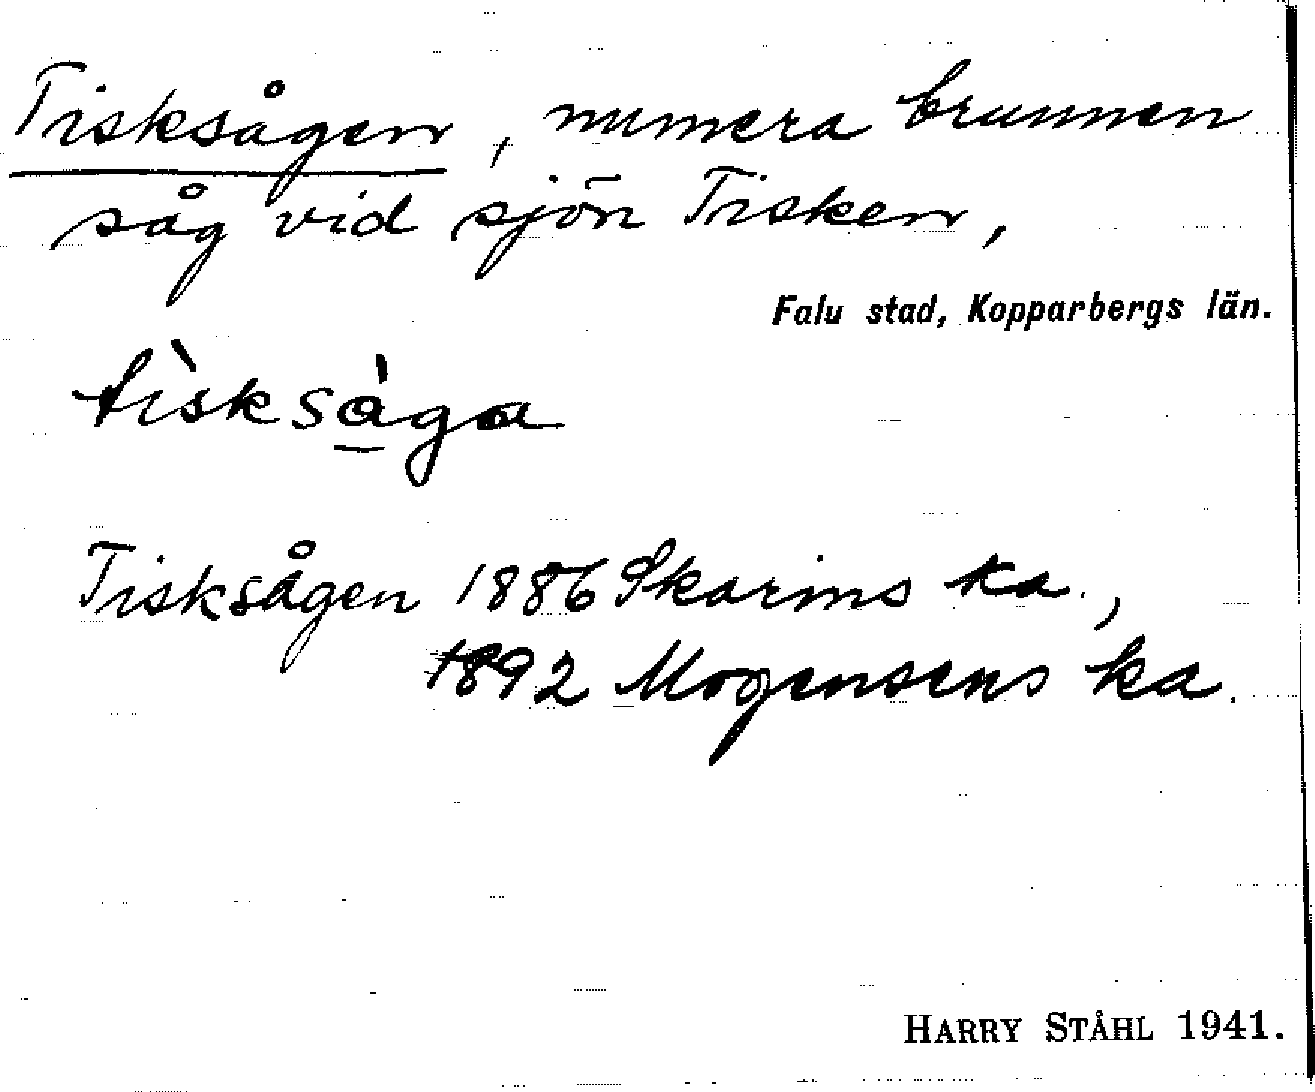 Tisksågen, numera brunnen
såg vid sjön Tisken,
Falu stad, Kopparbergs län.
tìsksàga
Tisksågen 1886 Skarins ka.,
1892 Mogensens ka.
HARRY STÅHL 1941.